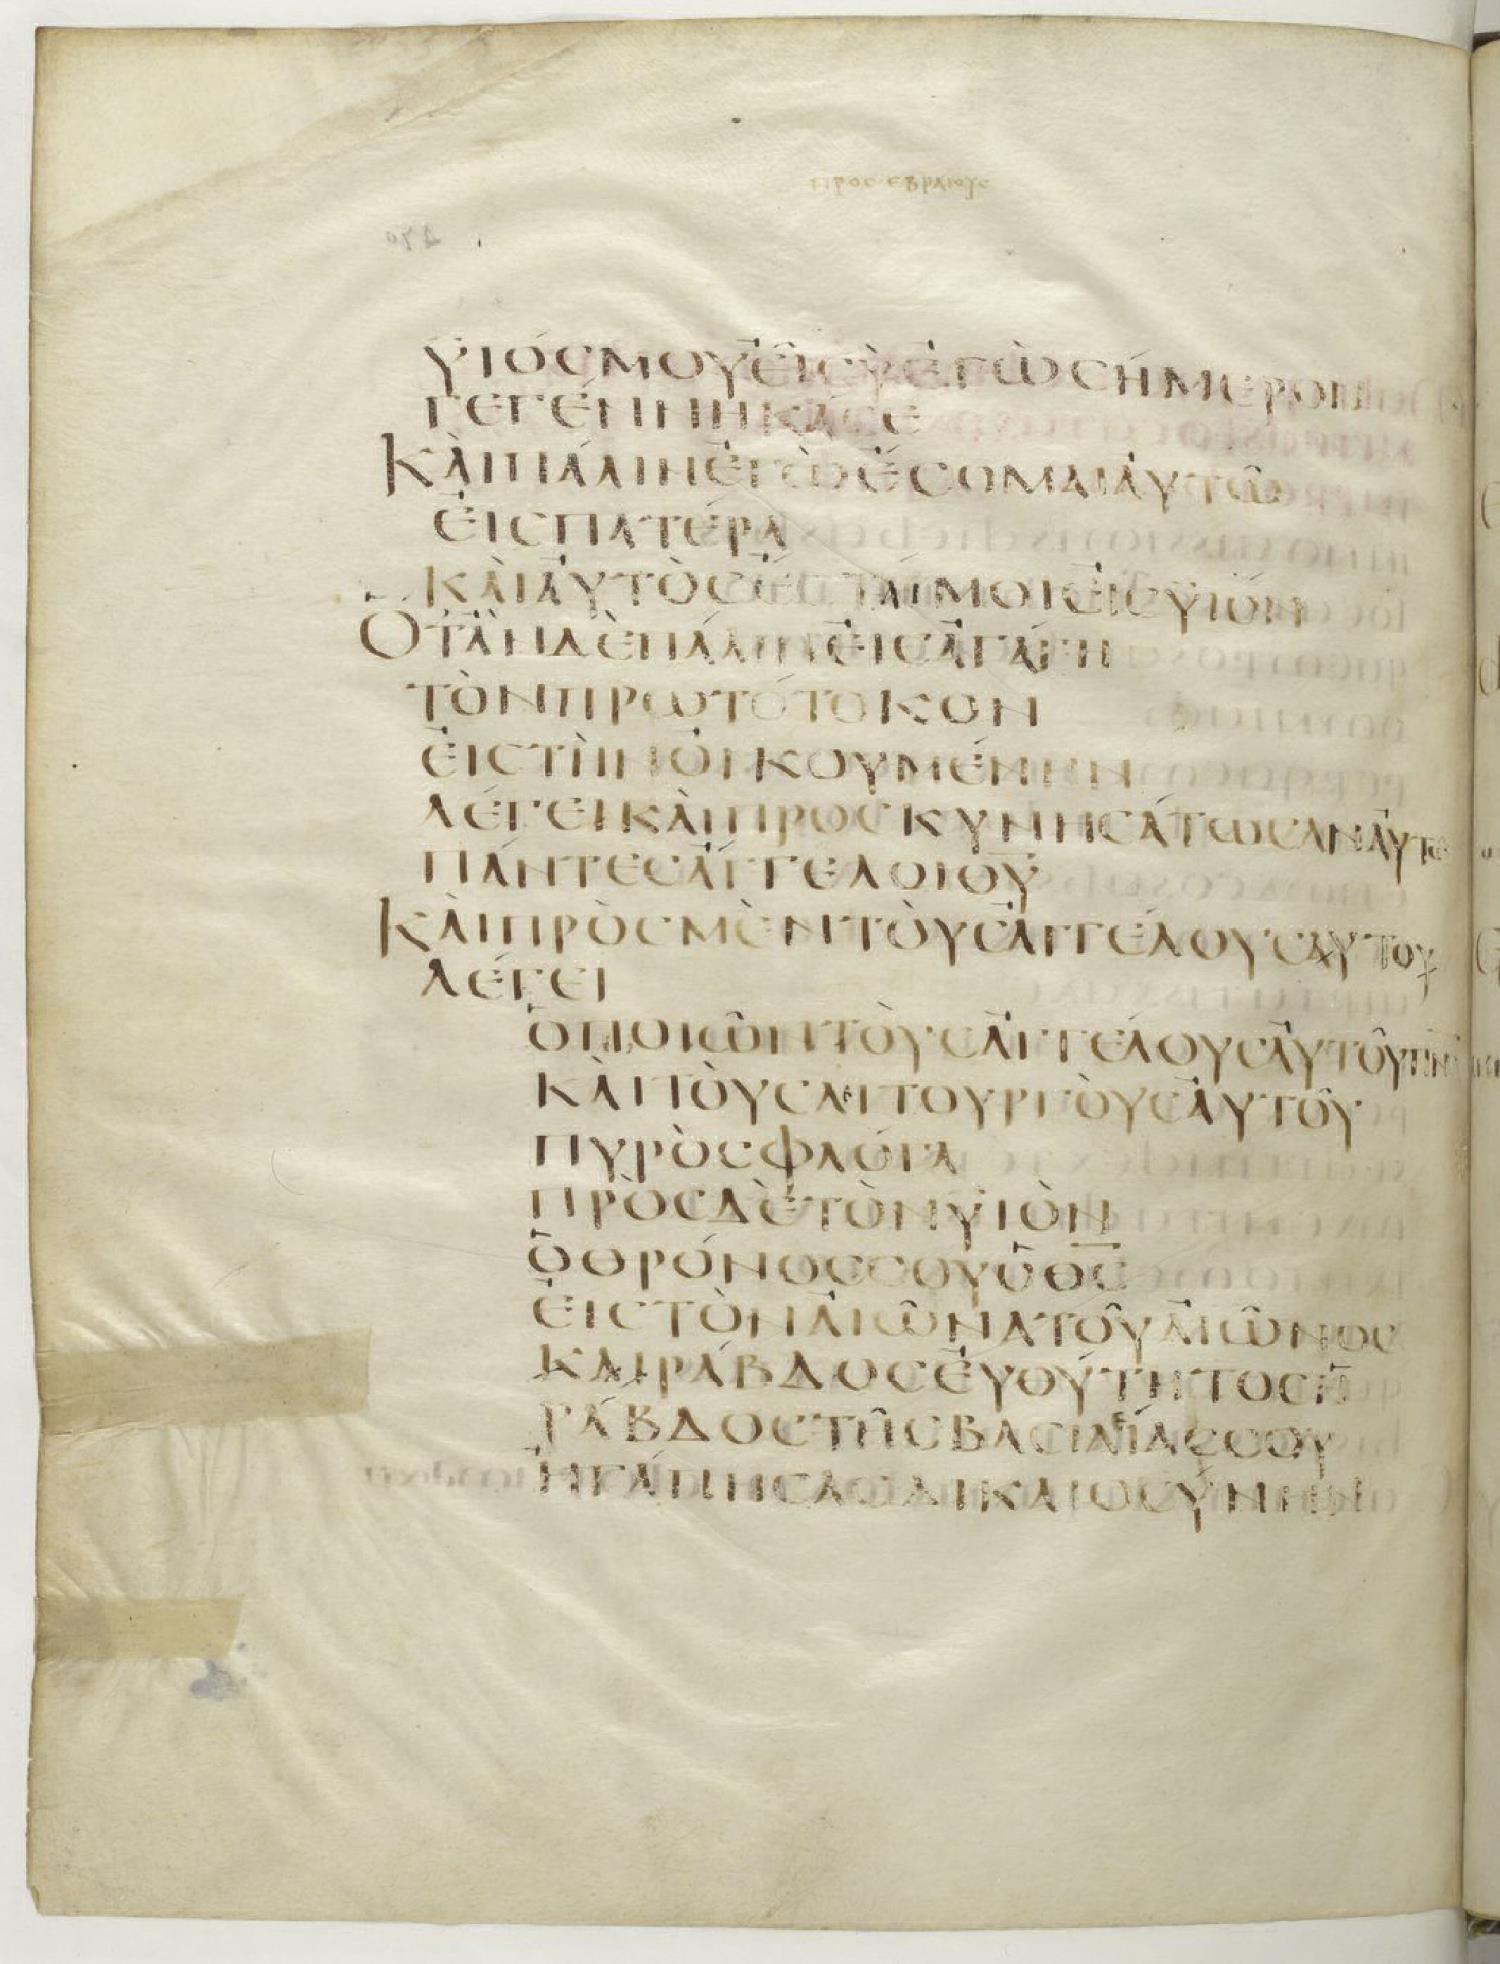 ΥΙΌCΜΟΥΕΙCΥΕΓΩCΗΜΕΡΟΝ
ΓΕΓΕΝΝΗΚΑCΕ
ΚΑΙΠΑΛΙΝΕΓΩΕCΟΜΑΙΑΥΤΩ
ΕΙCΠΑΤΕΡΑ
ΚΑΙΑΥΤΟCΕCΤΑΙΜΟΙΕΙCΥΙΟΝ
ΟΤΑΝΔΕΠΑΛΙΝΕΙCΑΓΑΓΗ
ΤΟΝΠΡΩΤΟΤΟΚΟΝ
ΕΙCΤΗΝΟΙΚΟΥΜΕΝΗΝ
ΛΕΓΕΙΚΑΙΠΡΟCΚΥΝΗCΑΤΩCΑΝΑΥΤΩ
ΠΑΝΤΕCΑΓΓΕΛΟΙΘΥ
ΚΑΙΠΡΟCΜΕΝΤΟΥCΑΓΓΕΛΟΥCΑΥΤΟΥ
ΛΕΓΕΙ
ΟΠΟΙΩΝΤΟΥCΑΓΓΕΛΟΥCΑΥΤΟΥ
ΚΑΙΤΟΥCΛΕΙΤΟΥΡΓΟΥCΑΥΤΟΥ
ΠΥΡΟCΦΛΟΓΑ
ΠΡΟCΔΕΤΟΝΥΙΟΝ
ΟΘΡΟΝΟCCΟΥΟΘC
ΕΙCΤΟΝΑΙΩΝΑΤΟΥΑΙΩΝΟC
ΚΑΙΡΑΒΔΟCΕΥΘΥΤΗΤΟCΗ
ΡΑΒΔΟCΤΗCΒΑCΙΛΕΙΑCCΟΥ
ΗΓΑΠΗCΑCΔΙΚΑΙΟCΥΝΗΝ